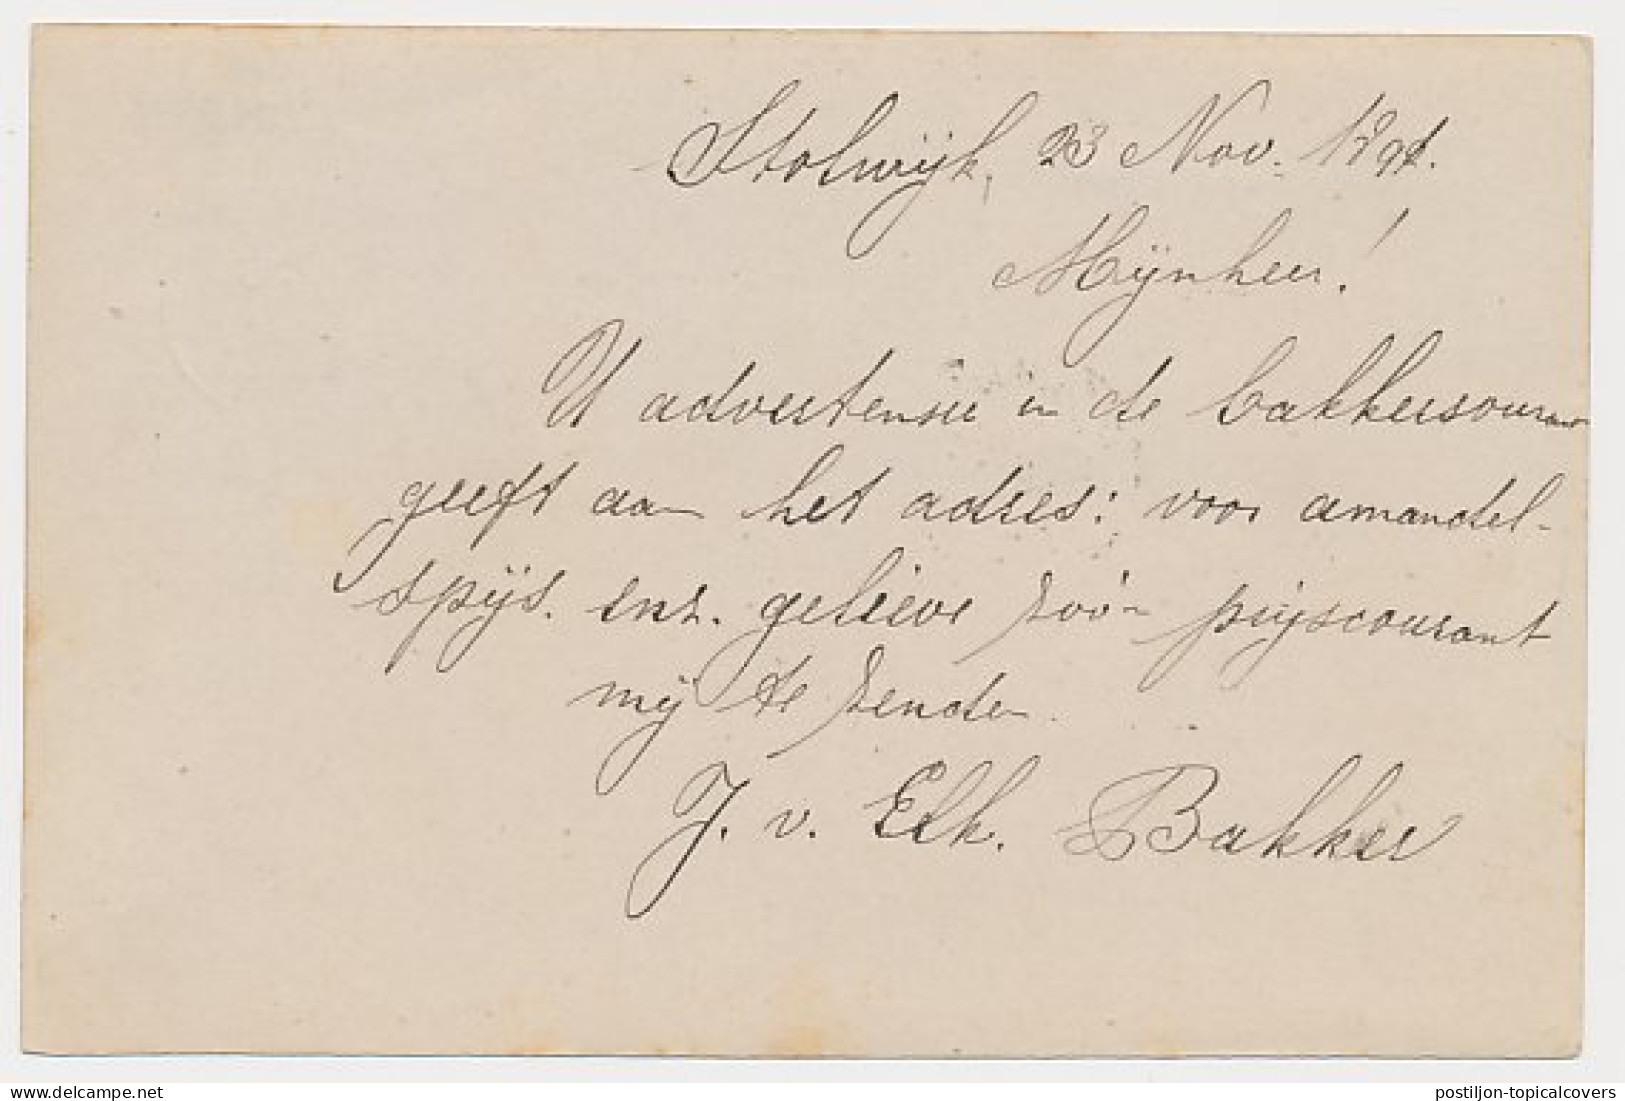 Stolwijk, 23 Nov. 1891.
Mijnheer!
U advertensie in de bakkerscourant
geeft aan het adres: voor amandel-
spijs. enz. gelieve zoo'n prijscourant
mij te zenden
J. v. Elk. Bakker
delcampe.net
postiljon-topicalcovers